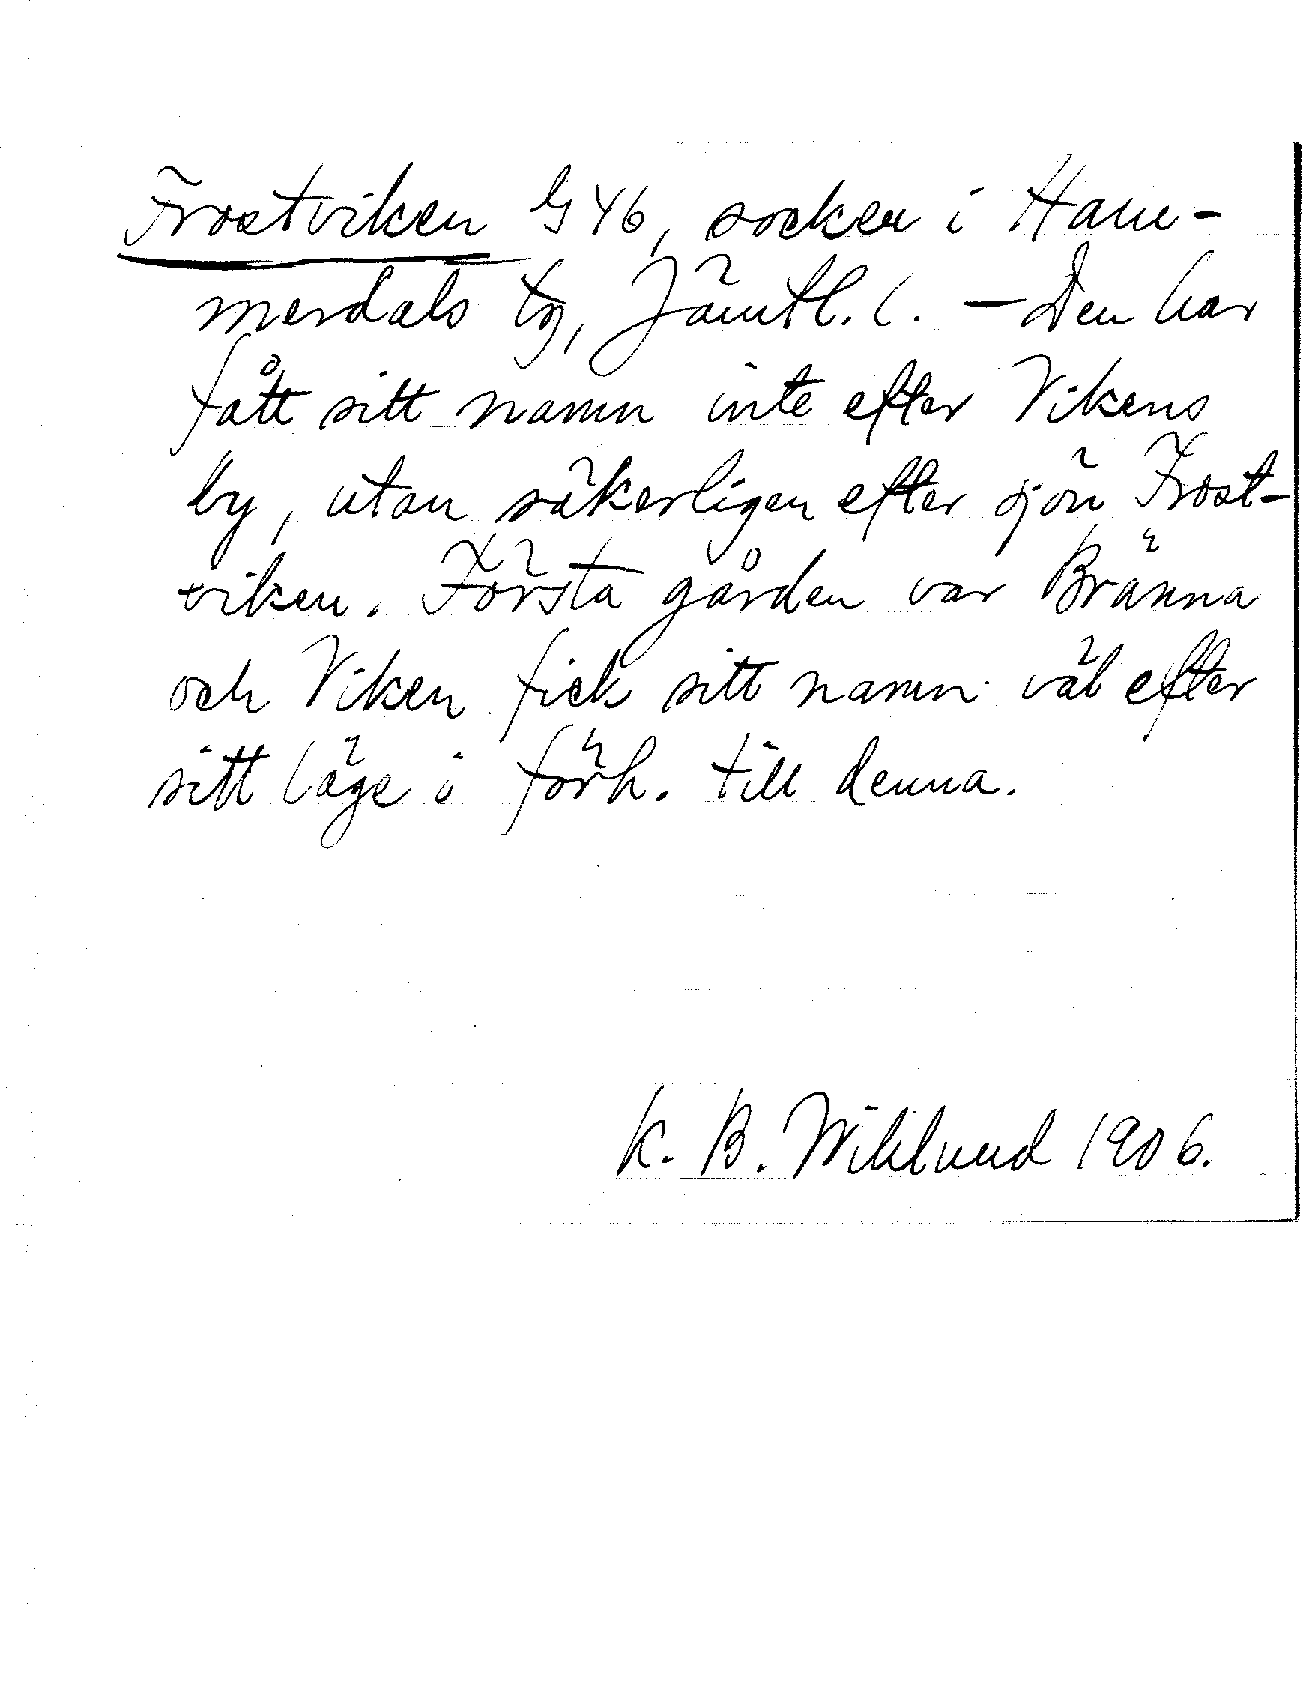 Frostviken G 46, socken i Ham-
merdals tg, Jämtl. l. – Den har
fått sitt namn inte efter Vikens
by, utan säkerligen efter sjön Frost-
viken. Första gården var Bränna
och Viken fick sitt namn väl efter
sitt läge i förh. till denna.
K. B. Wiklund 1906.